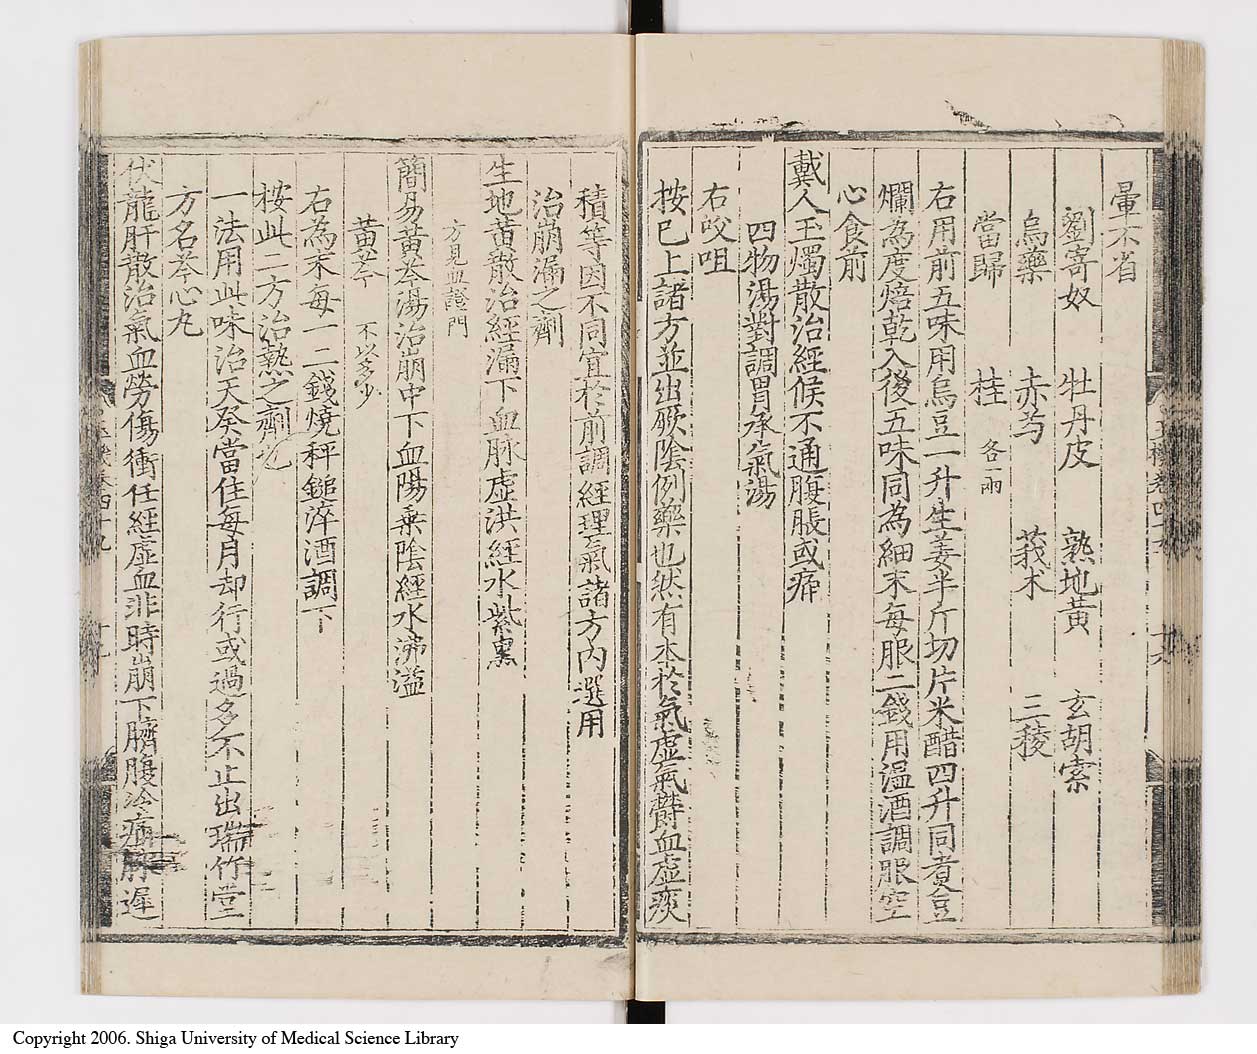 暈不省
劉寄奴 牡丹皮 熟地黄 玄胡索
烏藥 赤芍 莪术 三稜
當歸 桂 各一兩
右用前五味用烏豆一升生姜半斤切片米醋四升同煮豆
爛為度焙乾入後五味同為細末每服二錢用温酒調服空
心食前
戴人玉燭散治經候不通腹脹或痛
四物湯對調胃承氣湯
右㕮咀
按已上諸方並出厥陰例藥也然有本於氣虚氣欝血虚痰
積等因不同宜於前調經理氣諸方内選用
治崩漏之劑
生地黄散治經漏下血脉虚洪經水紫黑
方見血證門
簡易黄芩湯治崩中下血陽乗陰經水沸溢
黄芩 不以多少
右為末每一二錢燒秤鎚淬酒調下
按此二方治熱之劑也
一法用此味治天癸當住每月却行或過多不止出瑞竹堂
方名芩心丸
伏龍肝散治氣血勞傷衝任經虚血非時崩下臍腹冷痛脉遲
Copyright 2006. Shiga University of Medical Science Library